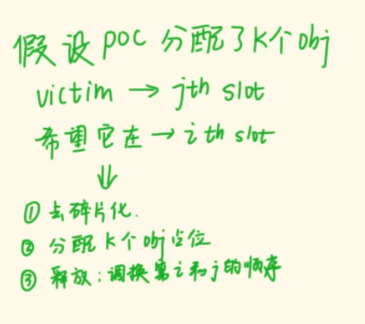 假设poc 分配了K个obj
victim → jth slot
希望它在 → ith slot
⇓
① 去碎片化.
② 分配K个obj占位
③ 释放:调换第i和j的顺序